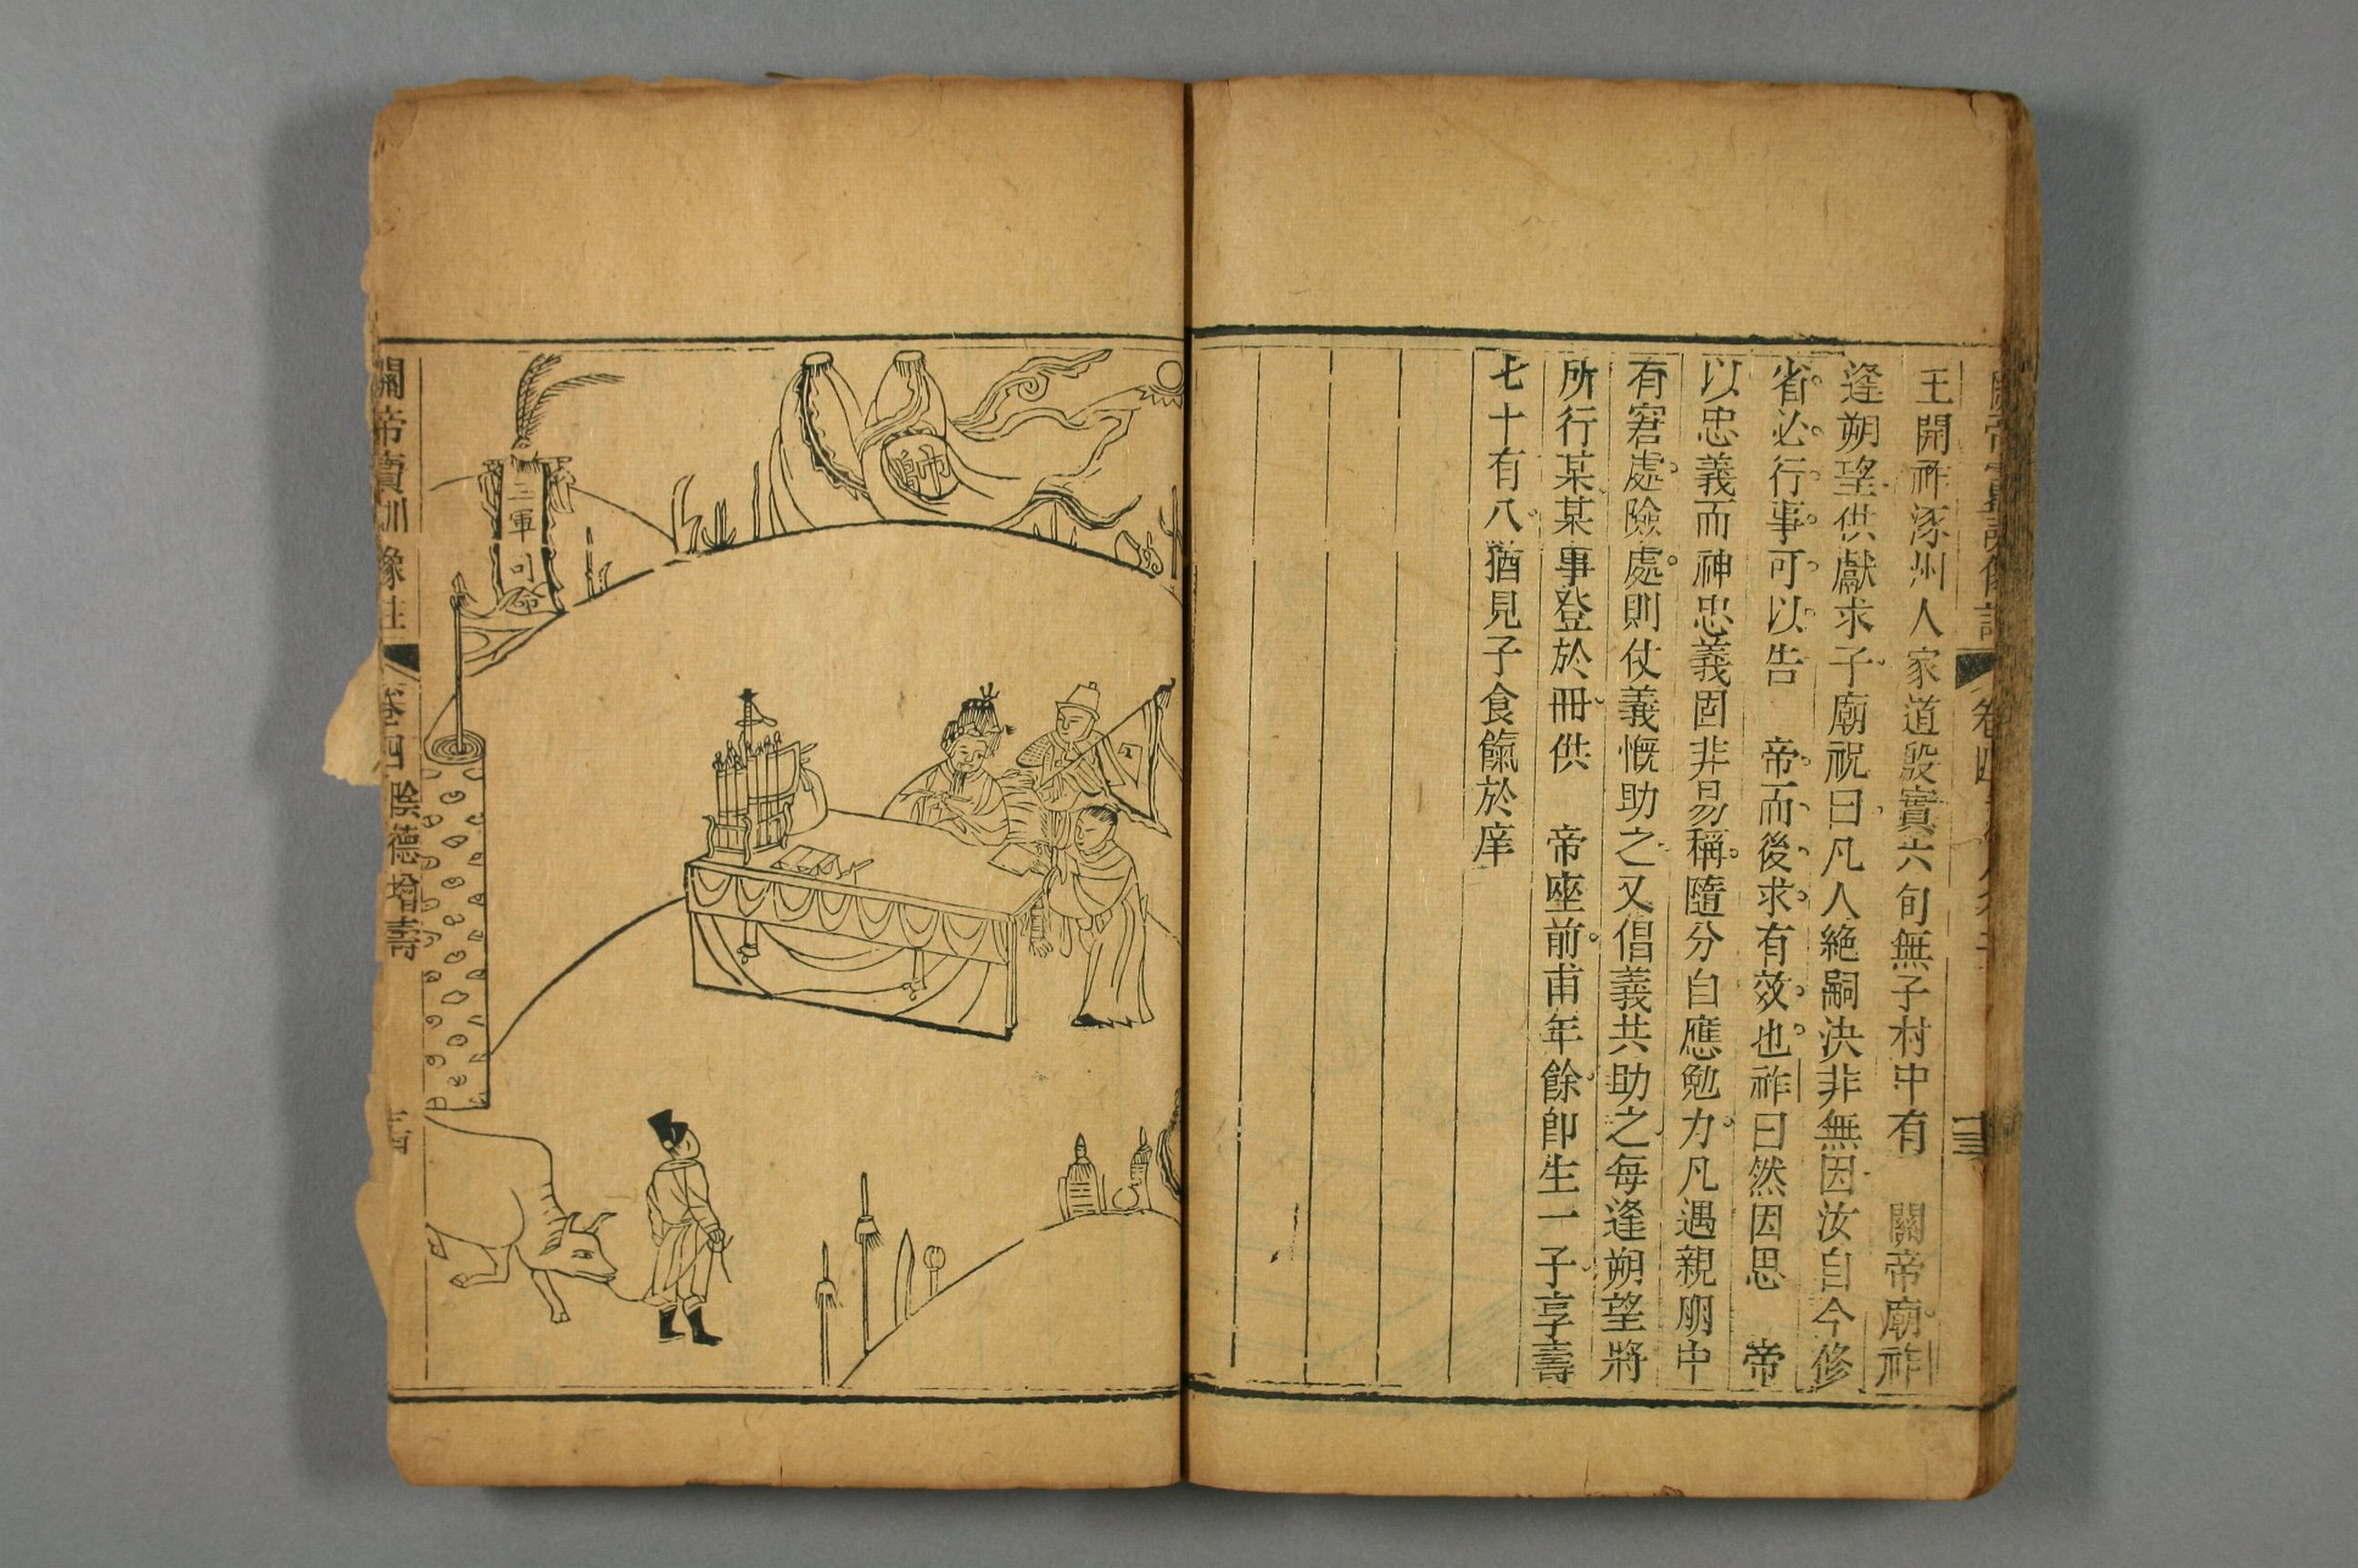 王開祚涿州人家道殷實六旬無子村中有　關帝廟祚
逢朔望供獻求子廟祝曰凡人絶嗣決非無因汝自今修
省必行事可以告　帝而後求有效也祚曰然因思　帝
以忠義而神忠義固非易稱隨分自應勉力凡遇親朋中
有窘處險處則仗義慨助之又倡義共助之每逢朔望將
所行某某事登於冊供　帝座前甫年餘卽生一子享壽
七十有八猶見子食餼於庠
帥
三軍司命
關帝寶訓像註　卷四　陰德增壽